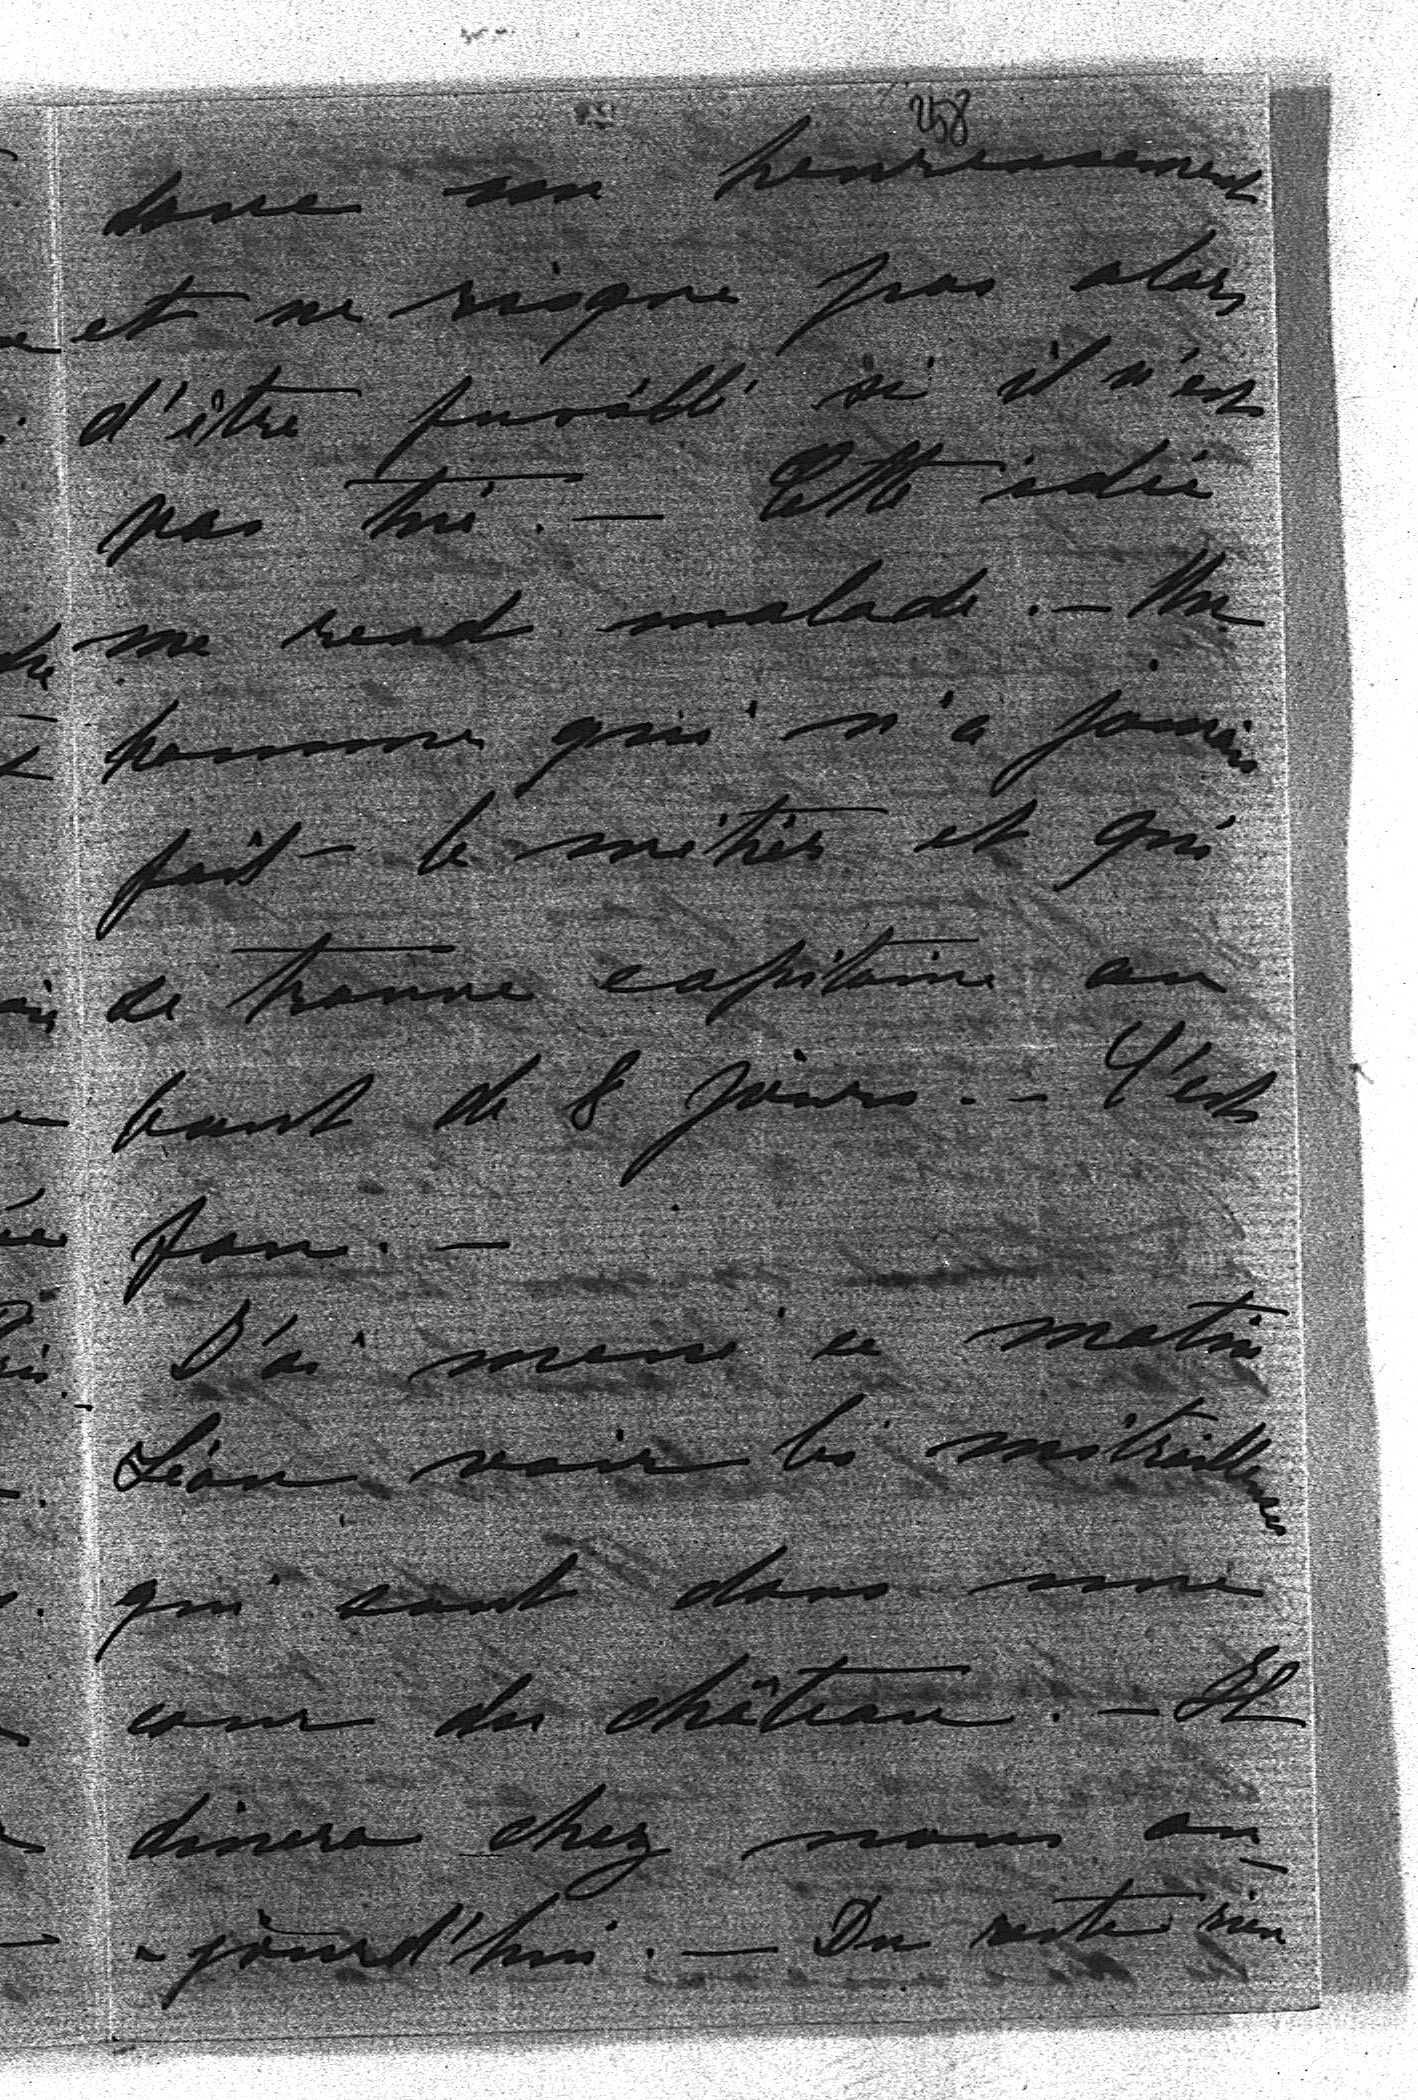 258
heureusement
et ne risque pas alors
d'être fusillé si il n'est
pas tué. — Cette idée
me rend malade. — Un
homme qui n'a jamais
fait le métier et qui
se trouve capitaine au
bout de 8 jours. — C'est
fou. —
J'ai mené ce matin
Léon voir les mitrailleuses
qui sont dans une
cour du château. — Il
dinera chez nous au-
-jourd'hui. — Du reste rien